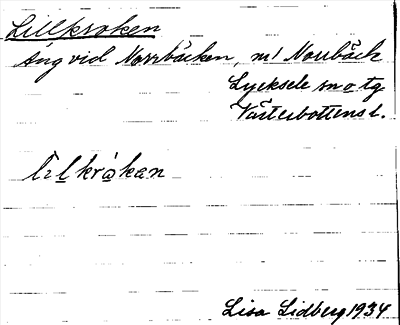 Lillkroken
Äng vid Norrbäcken, m/ Norrbäck
Lycksele sn o tg
Västerbottens l.
lìlkrὰkαn
Lisa Lidberg 1934